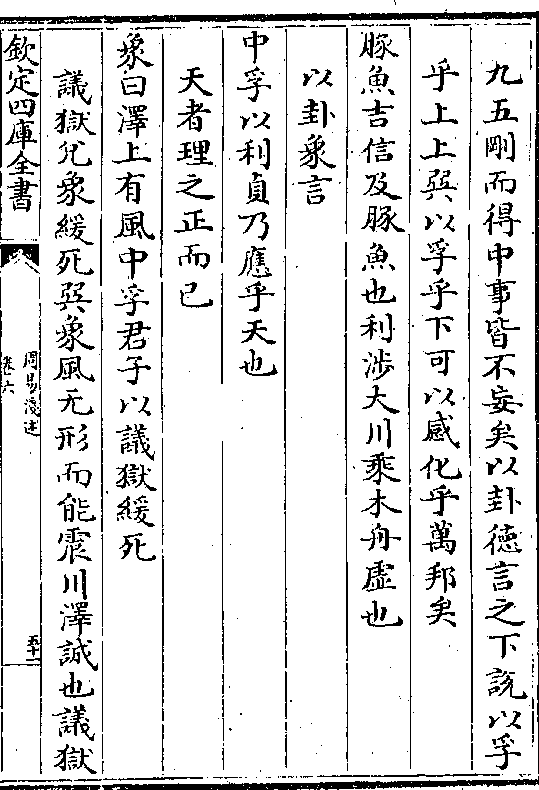 九五剛而得中事皆不妄矣以卦徳言之下説以孚
乎上上巽以孚乎下可以感化乎萬邦矣
豚魚吉信及豚魚也利渉大川乗木舟虚也
以卦象言
中孚以利貞乃應乎天也
天者理之正而已
象曰澤上有風中孚君子以議獄緩死
議獄兊象緩死巽象風无形而能震川澤誠也議獄
欽定四庫全書
周易淺述
卷六
五十一